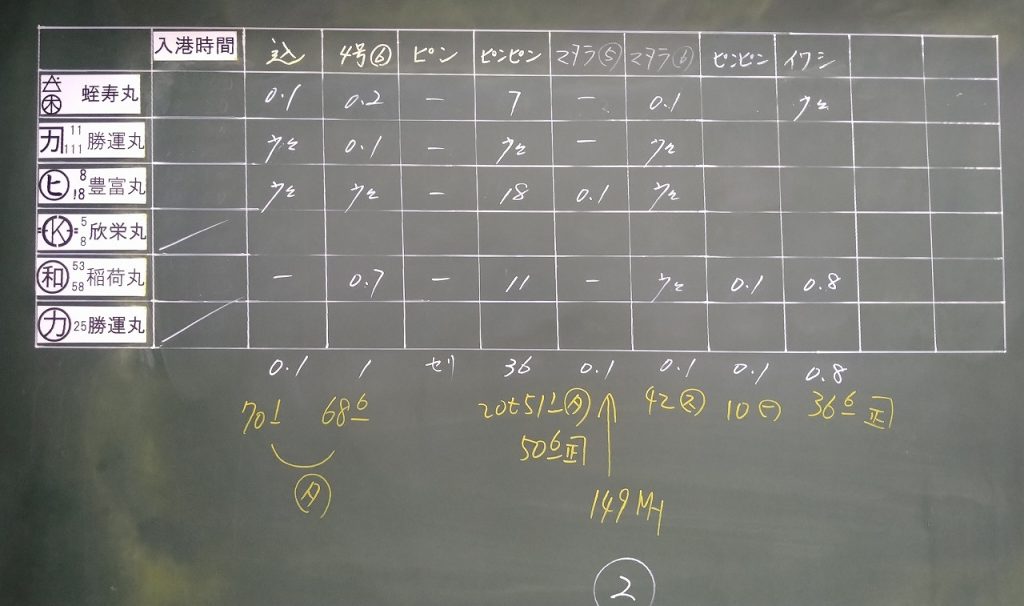 入港時間 込 4号⑥ ピン ピンピン マタラ⑤ マタラ⑥ ピンピン イワシ
蛭寿丸 0.1 0.2 ー 7 ー 0.1 ウセ
カ 11 111 勝運丸 ウセ 0.1 ー ウセ ー ウセ
ヒ 8 18 豊富丸 ウセ ウセ ー 18 0.1 ウセ
K 5 8 欣栄丸
和 53 58 稲荷丸 ー 0.7 ー 11 ー ウセ 0.1 0.8
カ 25 勝運丸
0.1 1 セリ 36 0.1 0.1 0.1 0.8
70 68 20t51 タ 42 10 36 正
50 正
タ
149
2